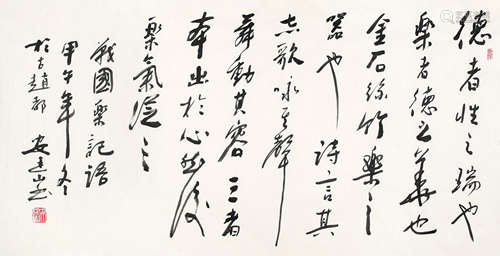 德者性之瑞也
樂者德之華也
金石絲竹樂之
器也詩言其
志歌咏其聲
舞動其容三者
本出於心然後
樂氣從之
戰國樂記語
甲午年冬
於古趙都安志山書